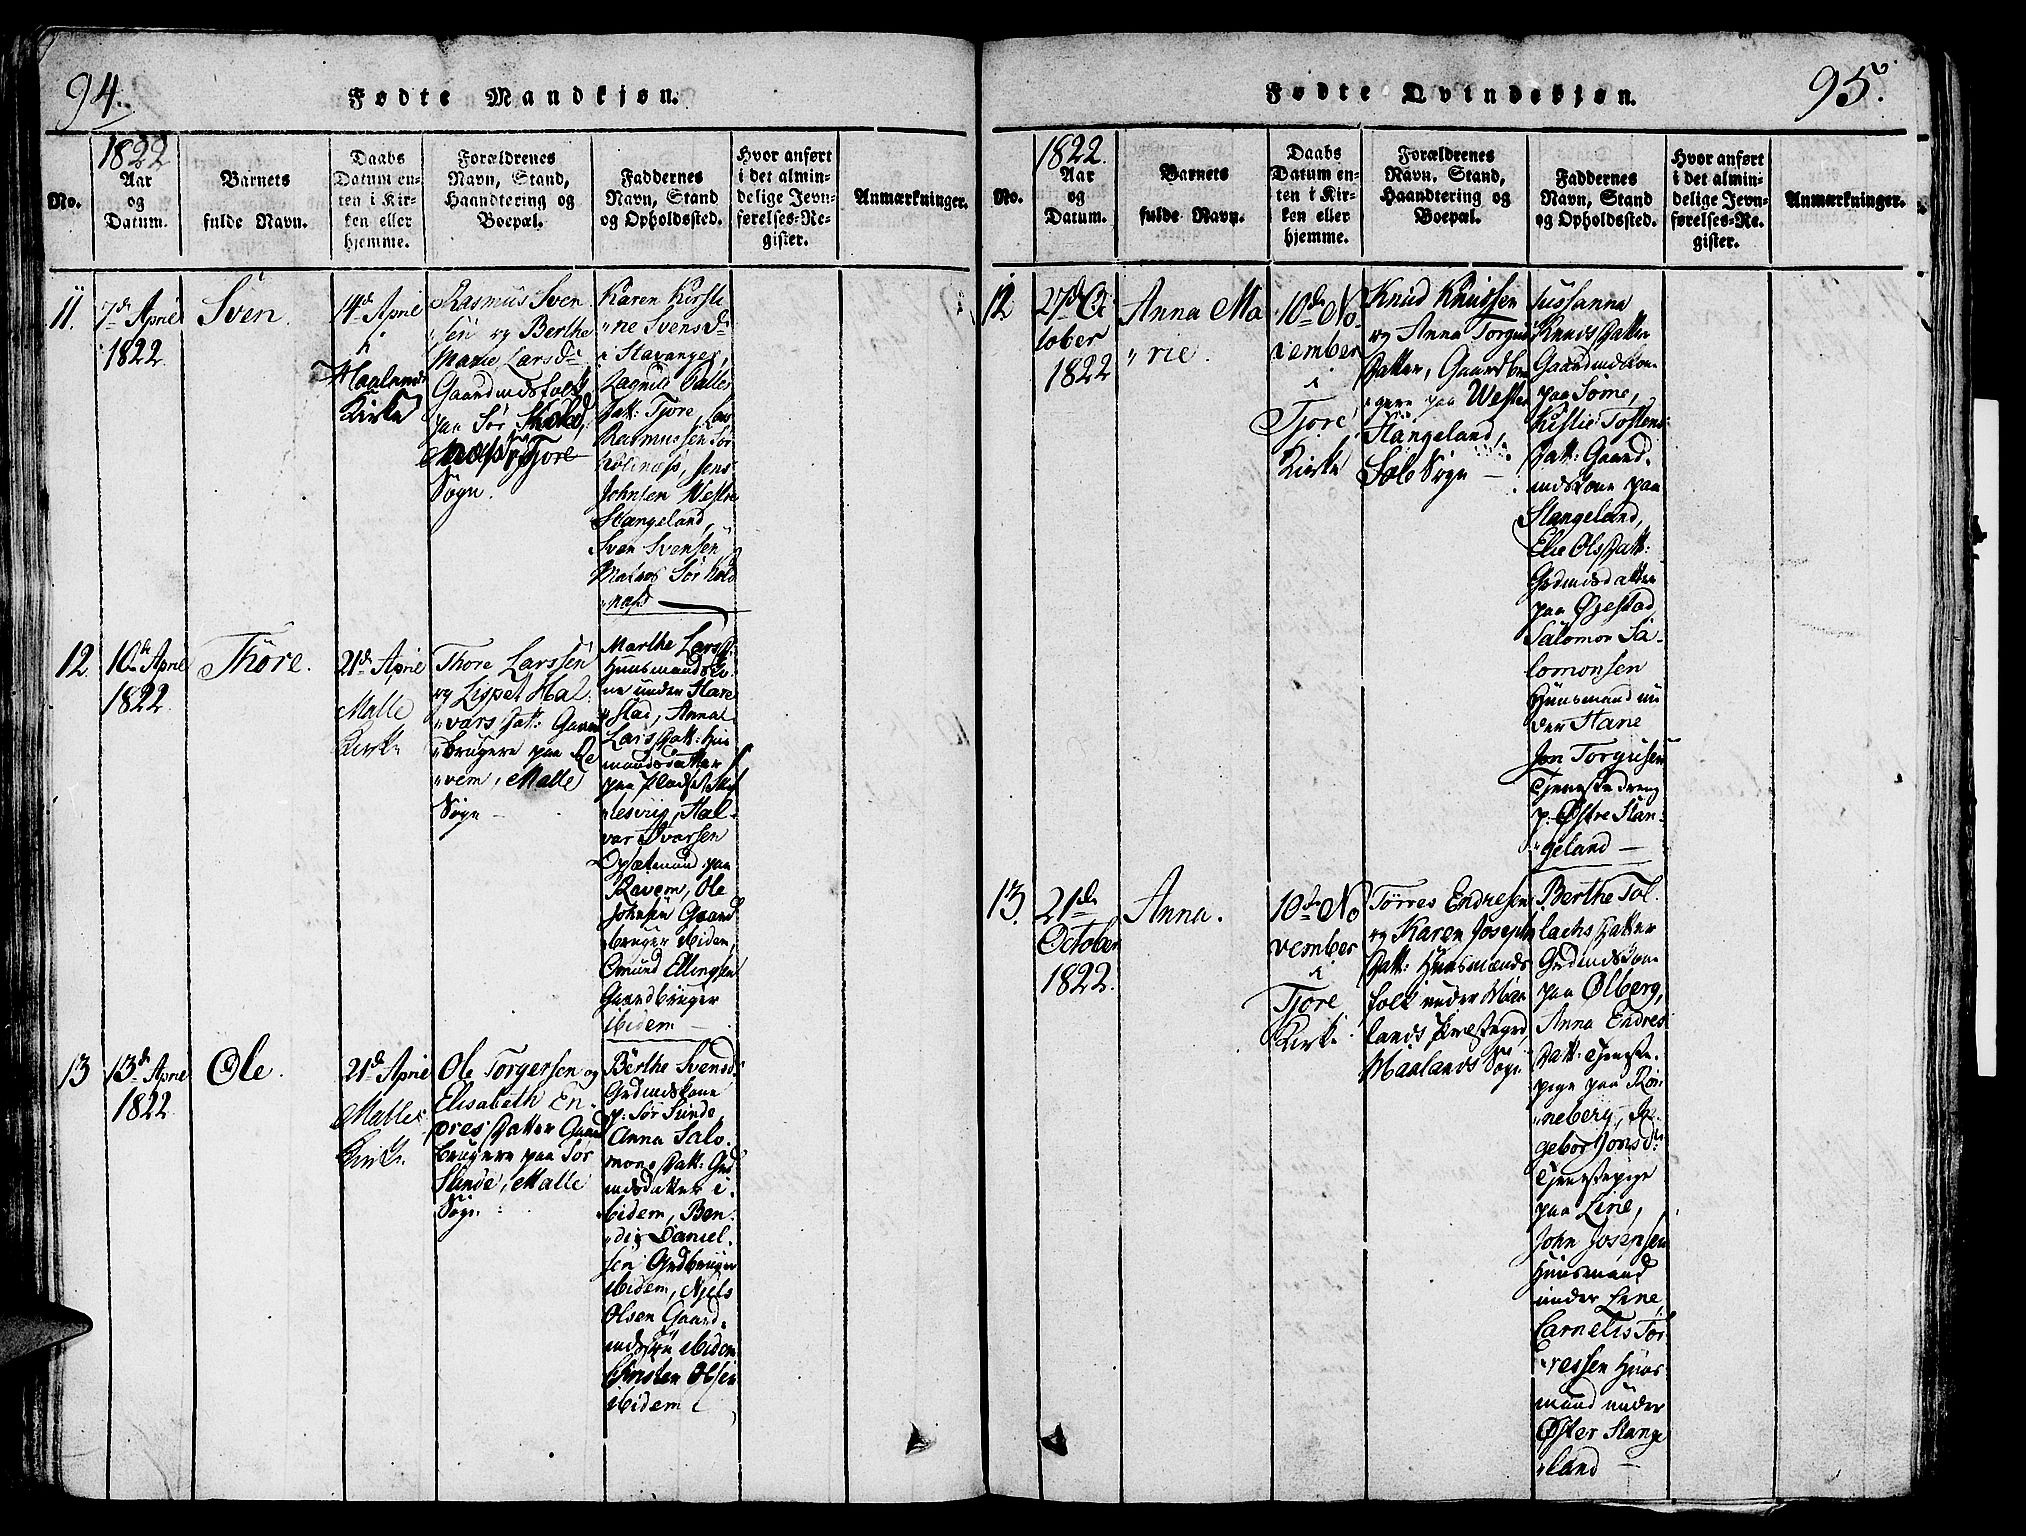 94.
Fødte Mandkjøn.
No.
1822
Aar
og
Datum.
Barnets
fulde Navn.
Daabs
Datum en-
ten i Kir-
ken eller
hjemme.
Forældrenes
Navn, Stand,
Haandtering og
Boepæl.
Faddernes
Navn, Stand
og Opholdssted.
Hvor anført
i det almin-
delige Jevn-
førelses-Re-
gister.
Anmærkninger.
11.
7de April
1822
Sven.
14de April
i
Haalands
Kirke
Rasmus Sven
sen og Berthe
Marie Larsdr
Gaardmdsfolk
paa Sør
Tjore
Sogn.
Karen Kirsti
ne Svensdr
i Stavanger,
Datt: Tjore,
Rasmussen Sør
Kolnæs, Jens
Johnsen Westre
Stangeland,
Sven Svensen
Sør Kol
næs
12.
10de April
1822
Thore.
21de April
Malle
Kirke
Thore Larssen
og Lispet Hal
vars Datt: Gaard
brugere paa Re
vem, Malle
Sogn
Marthe Larsd:
Huusmandsko
ne under Hare
stad, Anna
Lars Datt: Huus
mandsdatter
paa Pladset
Hal
var Ivarsen
paa
Revem, Ole
Johnsen Gaard
bruger ibidem,
Omund Ellingsen
Gaardbruger
ibidem
13
13de April
1822
Ole.
21de April
Malle
Kirke
Ole Torgersen og
Elisabeth En
dres Datter Gaard
brugere paa Sør
Sunde, Malle
Sogn
Berthe Svensdr
Grdmdskone
p: Sør Sunde,
Anna Salo
mons Datt: Grd
mdsdatter i
bidem, Ben
dix Daniel
sen Grdbruger
ibidem, Njels
Olsen Gaard
mdssøn ibidem
Christen Olsen
ibidem
95.
Fødte Qvindekjøn.
No.
1822.
Aar
og
Datum.
Barnets
fulde Navn.
Daabs
Datum en-
ten i Kir-
ken eller
hjemme.
Forældrenes
Navn, Stand,
Haandtering og
Boepæl.
Faddernes
Navn, Stand
og Opholdssted.
Hvor anført
i det almin-
delige Jevn-
førelses-Re-
gister.
Anmærkninger.
12
27de Oc
tober
1822
Anna Ma
rie.
10de No
vember
i
Tjore
Kirke
Knud Knudsen
og Anna Torgus
Datter, Gaardbru
gere paa Wester
Stangeland,
Sole Sogn
Sussanna
Knuds Datter
Gaardmdskone
paa Sømme,
Kistie Tostens
Datt: Gaard
mdskone paa
Stangeland,
Elie Ols Datt:
Grdmdsdatter
paa Øjestad,
Salomon Sa
lomonsen
Huusmand un
der Hane
Jon Torgusen
Tjenestedreng
p: Østre Stan
geland
13.
21de
October
1822.
Anna.
10de No
vember
i
Tjore
Kirke
Tørres Endresen
og Karen Joseph
Datt: Huusmænds
folk under Haa
lands Præstegrd,
Haalands Sogn
Berthe Tol
lachs Datter
Grdmdskone
paa Ølberg,
Anna Endres
Datt: Tjeneste
pige paa Røn
neberg, In
gebor Jonsdr:
Tjenestepige
paa Line,
John Josepsen
Huusmand
under Line,
Cornelis Tør
ressen Huus
mand under
Øster Stange
land